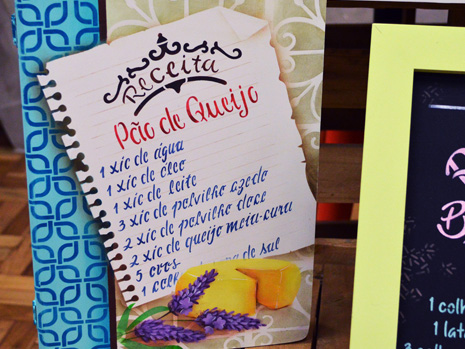 Receita
Pão de Queijo
1 xíc de água
1 xíc de óleo
1 xíc de leite
3 xíc de polvilho azedo
2 xíc de polvilho doce
2 xíc de queijo meia-cura
5 ovos
1 colh de sal
B
1 colh
1 lat